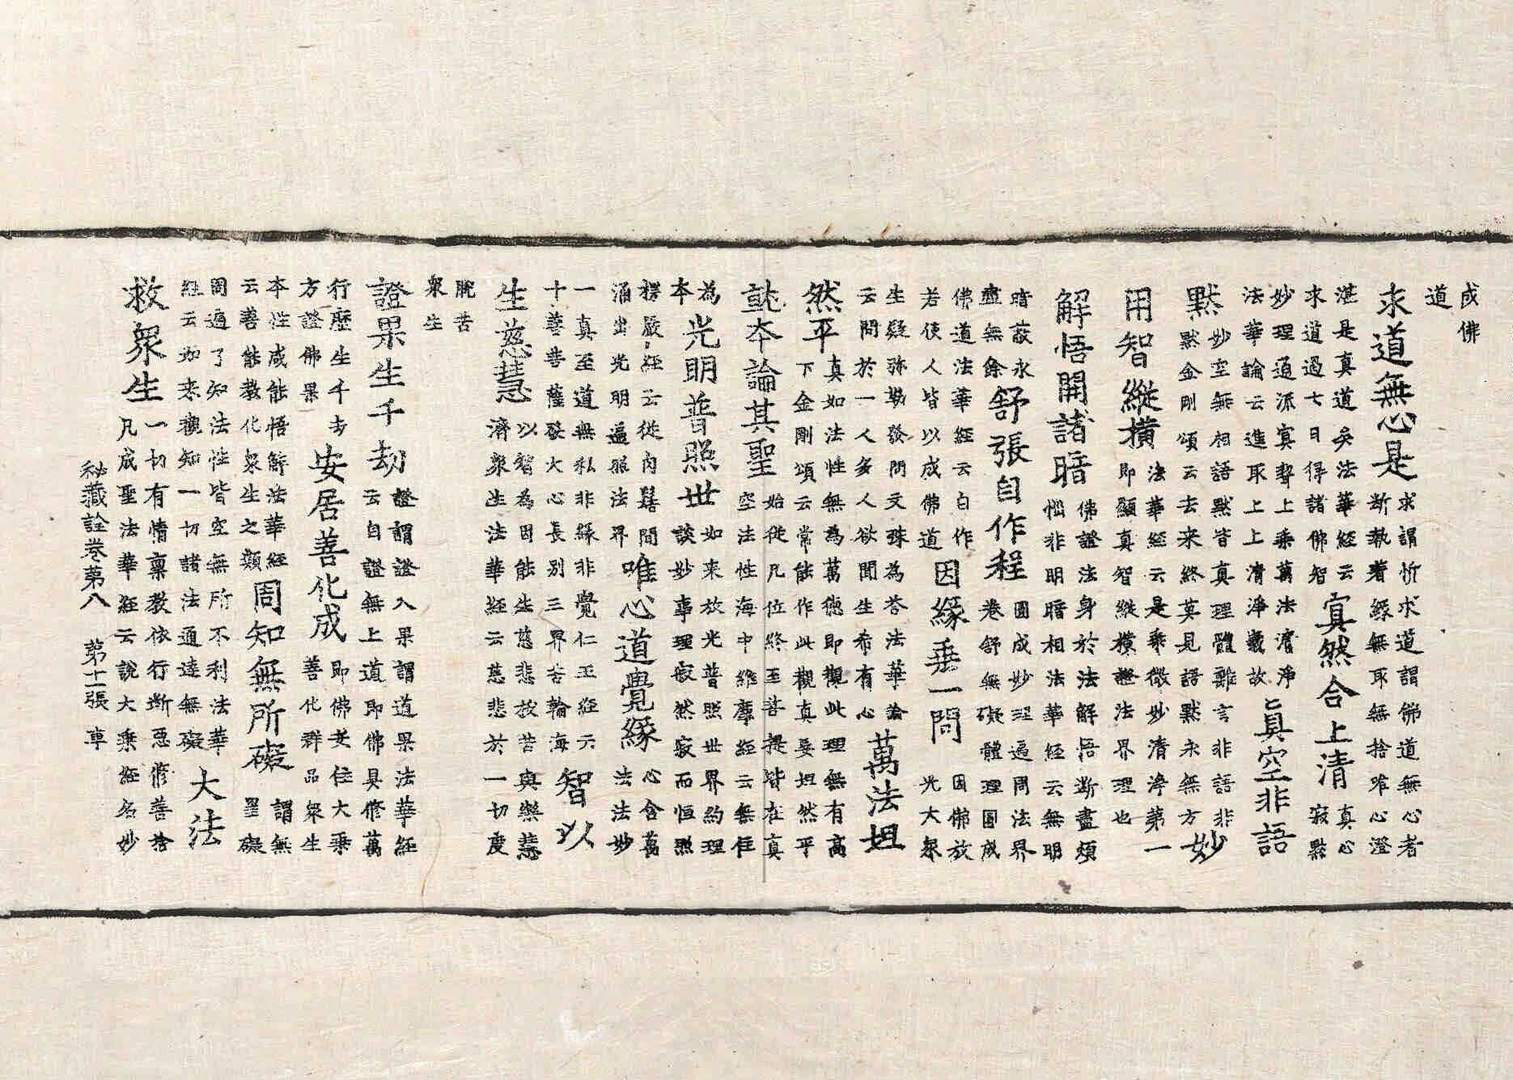 成佛
道
求道無心是求謂忻求道謂佛道無心者
斷執著緣無取無捨唯心澄
湛是真道矣法華經云
求道過七日得諸佛智寞然合上清真心
寂默
妙理通派寞契上乘萬法清淨
法華論云進取上上清淨義故真空非語
默妙空無相語默皆真理體離言非語非
默金剛頌云去来終莫見語默永無方妙
用智縱橫法華經云是乘微妙清淨第一
即顯真智縱橫證法界理也
解悟開諸暗佛證法身於法解悟斷盡煩
惱非明暗相法華經云無明
暗蔽永
盡無餘舒張自作程圓成妙理遍周法界
卷舒無礙體理圓成
佛道法華經云自作
若使人皆以成佛道因緣垂一問因佛放
光大衆
生疑弥勒發問文殊為荅法華論
云問於一人多人欲聞生希有心萬法坦
然平真如法性無為萬德即觀此理無有高
下金剛頌云常能作此觀真妄坦然平
本論其聖始從凡位終至菩提皆在真
空法性海中維摩經云無住
為
本光明普照世如来放光普照世界約理
談妙事理寂然寂而恒照
楞嚴經云從肉髻間
涌出光明遍照法界唯心道覺緣心含萬
法法妙
一真至道無私非緣非覺仁王經云
十善菩薩發大心長別三界苦輪海智以
生慈慧以智為因能生慈悲故苦與樂慧
濟衆生法華經云慈悲於一切度
脫苦
衆生
證果生千劫證謂證入果謂道果法華經
云自證無上道即佛具修萬
行歷生千劫
方證佛果安居善化成即佛安住大乘
善化群品衆生
本性咸能悟解法華經
云善能教化衆生之類周知無所礙謂無
罣礙
周遍了知法性皆空無所不利法華
經云如来觀知一切諸法通達無礙大法
救衆生一切有情稟教依行斷惡修善捨
凡成聖法華經云說大乘經名妙
秘藏詮卷第八 第十一張 專